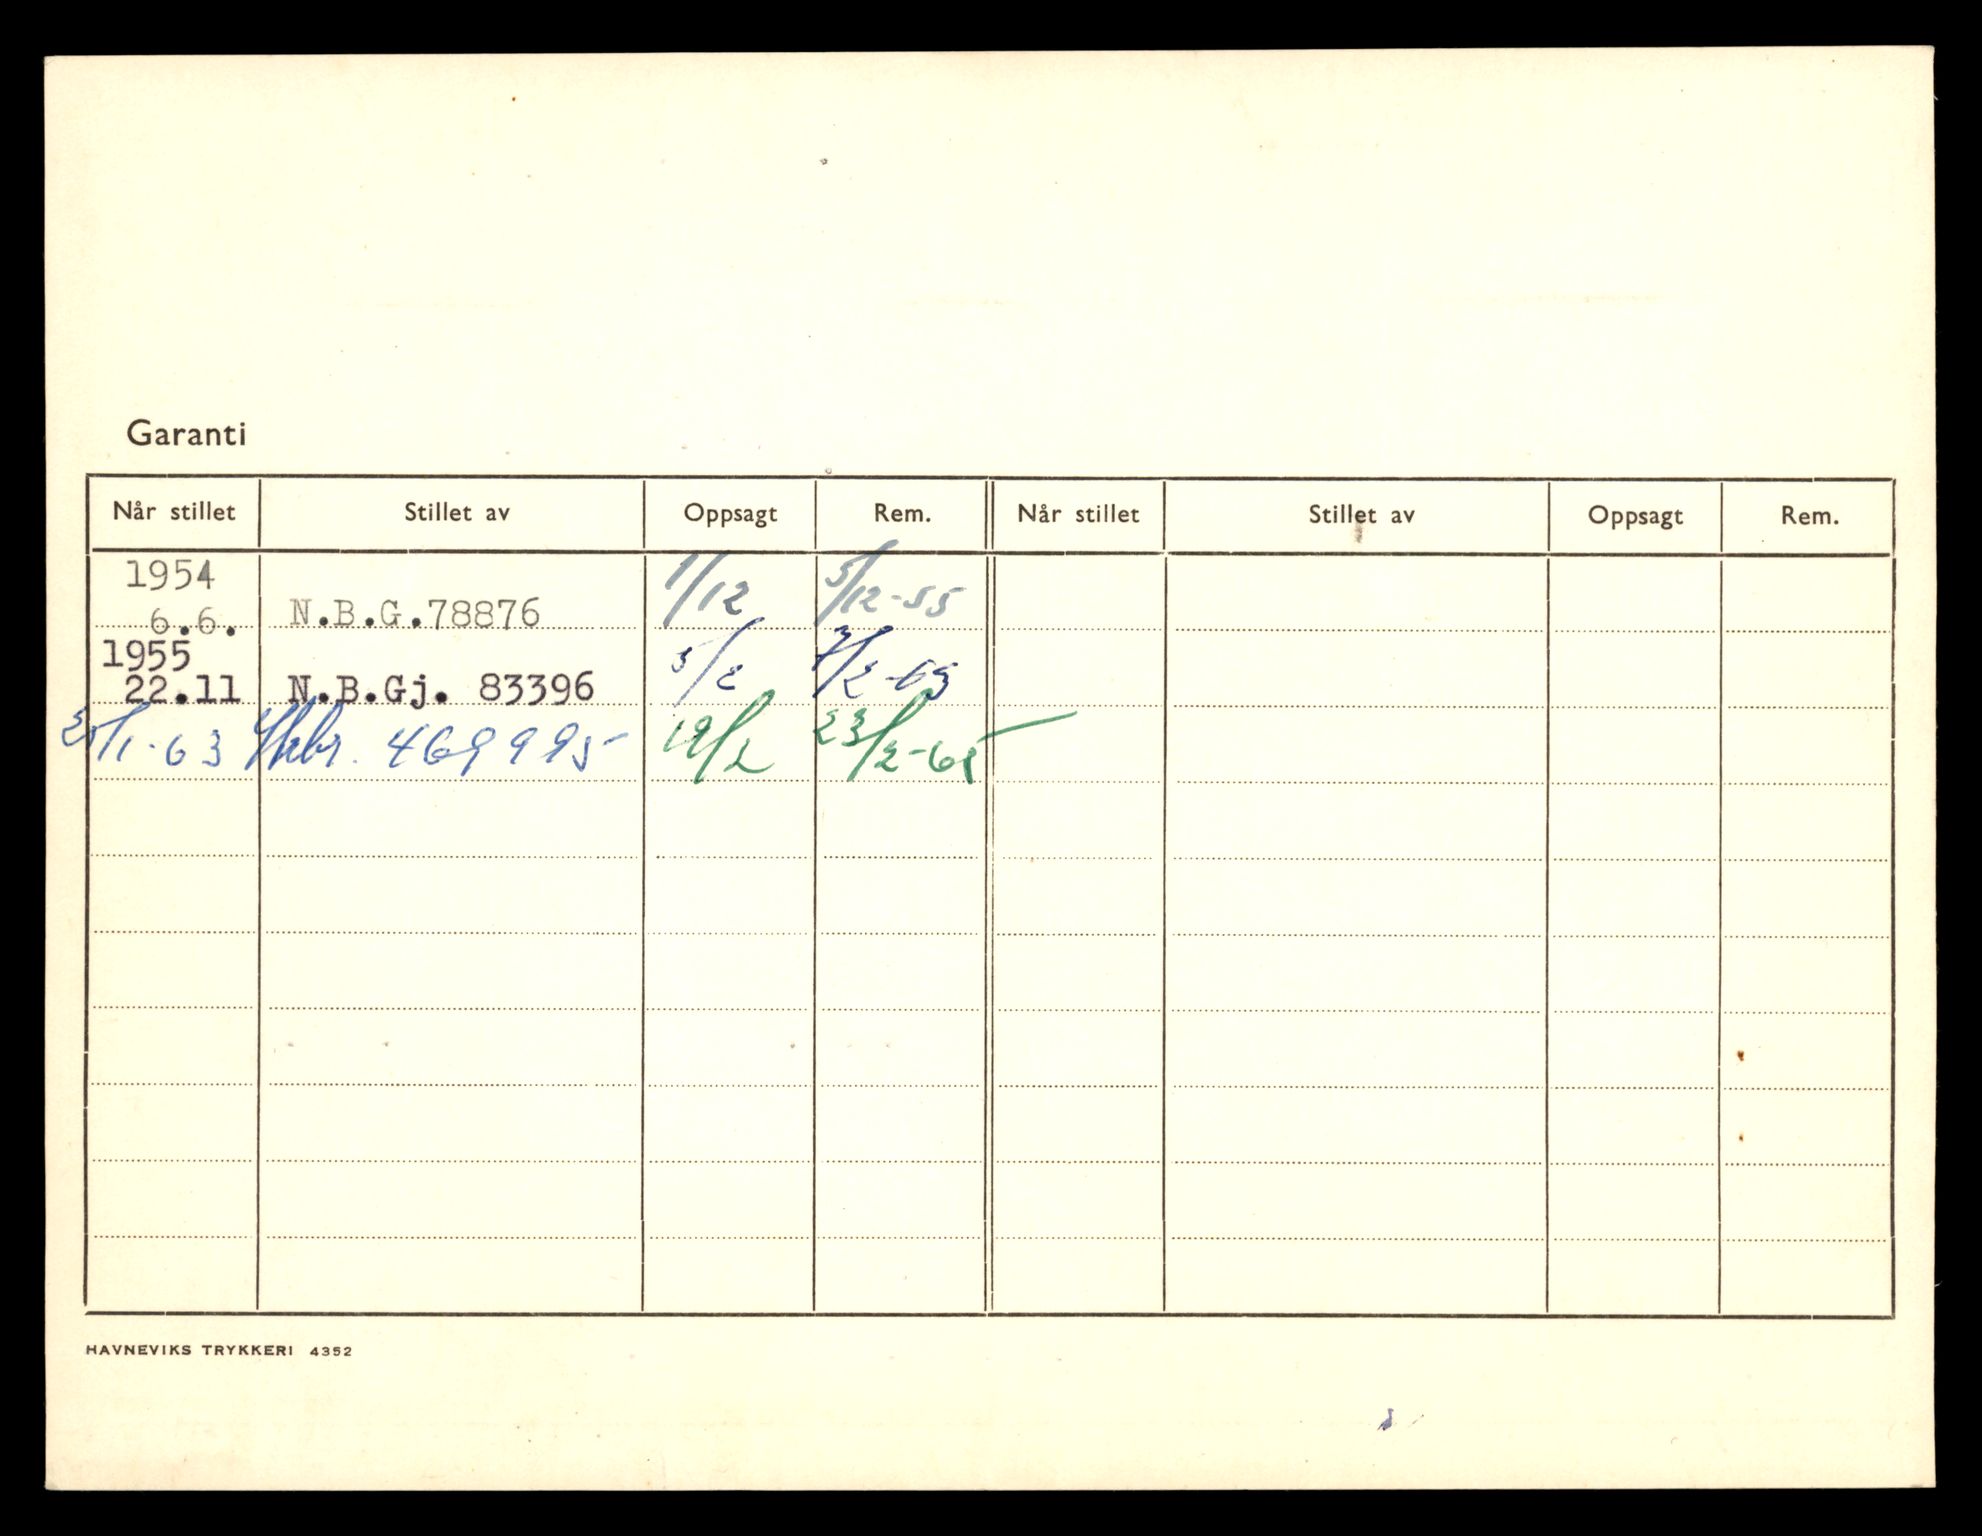 Garanti
Når stillet Stillet av Oppsagt Rem. Når stillet Stillet av Oppsagt Rem.
1954
6.6. N.B.G.78876 1/12 5/12-55
1955
22.11 N.B.Gj. 83396 5/2 7/2-63
25/1-63 469995 19/2 23/2-65
HAVNEVIKS TRYKKERI 4352